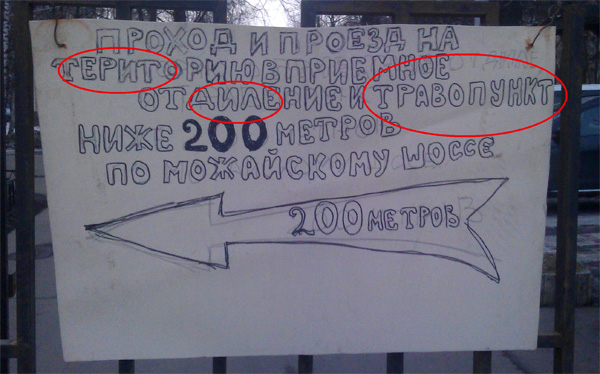 ПРОХОД И ПРОЕЗД НА
ТЕРИТОРИЮ В ПРИЕМНОЕ
ОТДИЛЕНИЕ И ТРАВОПУНКТ
НИЖЕ 200 МЕТРОВ
ПО МОЖАЙСКОМУ ШОССЕ
200 МЕТРОВ